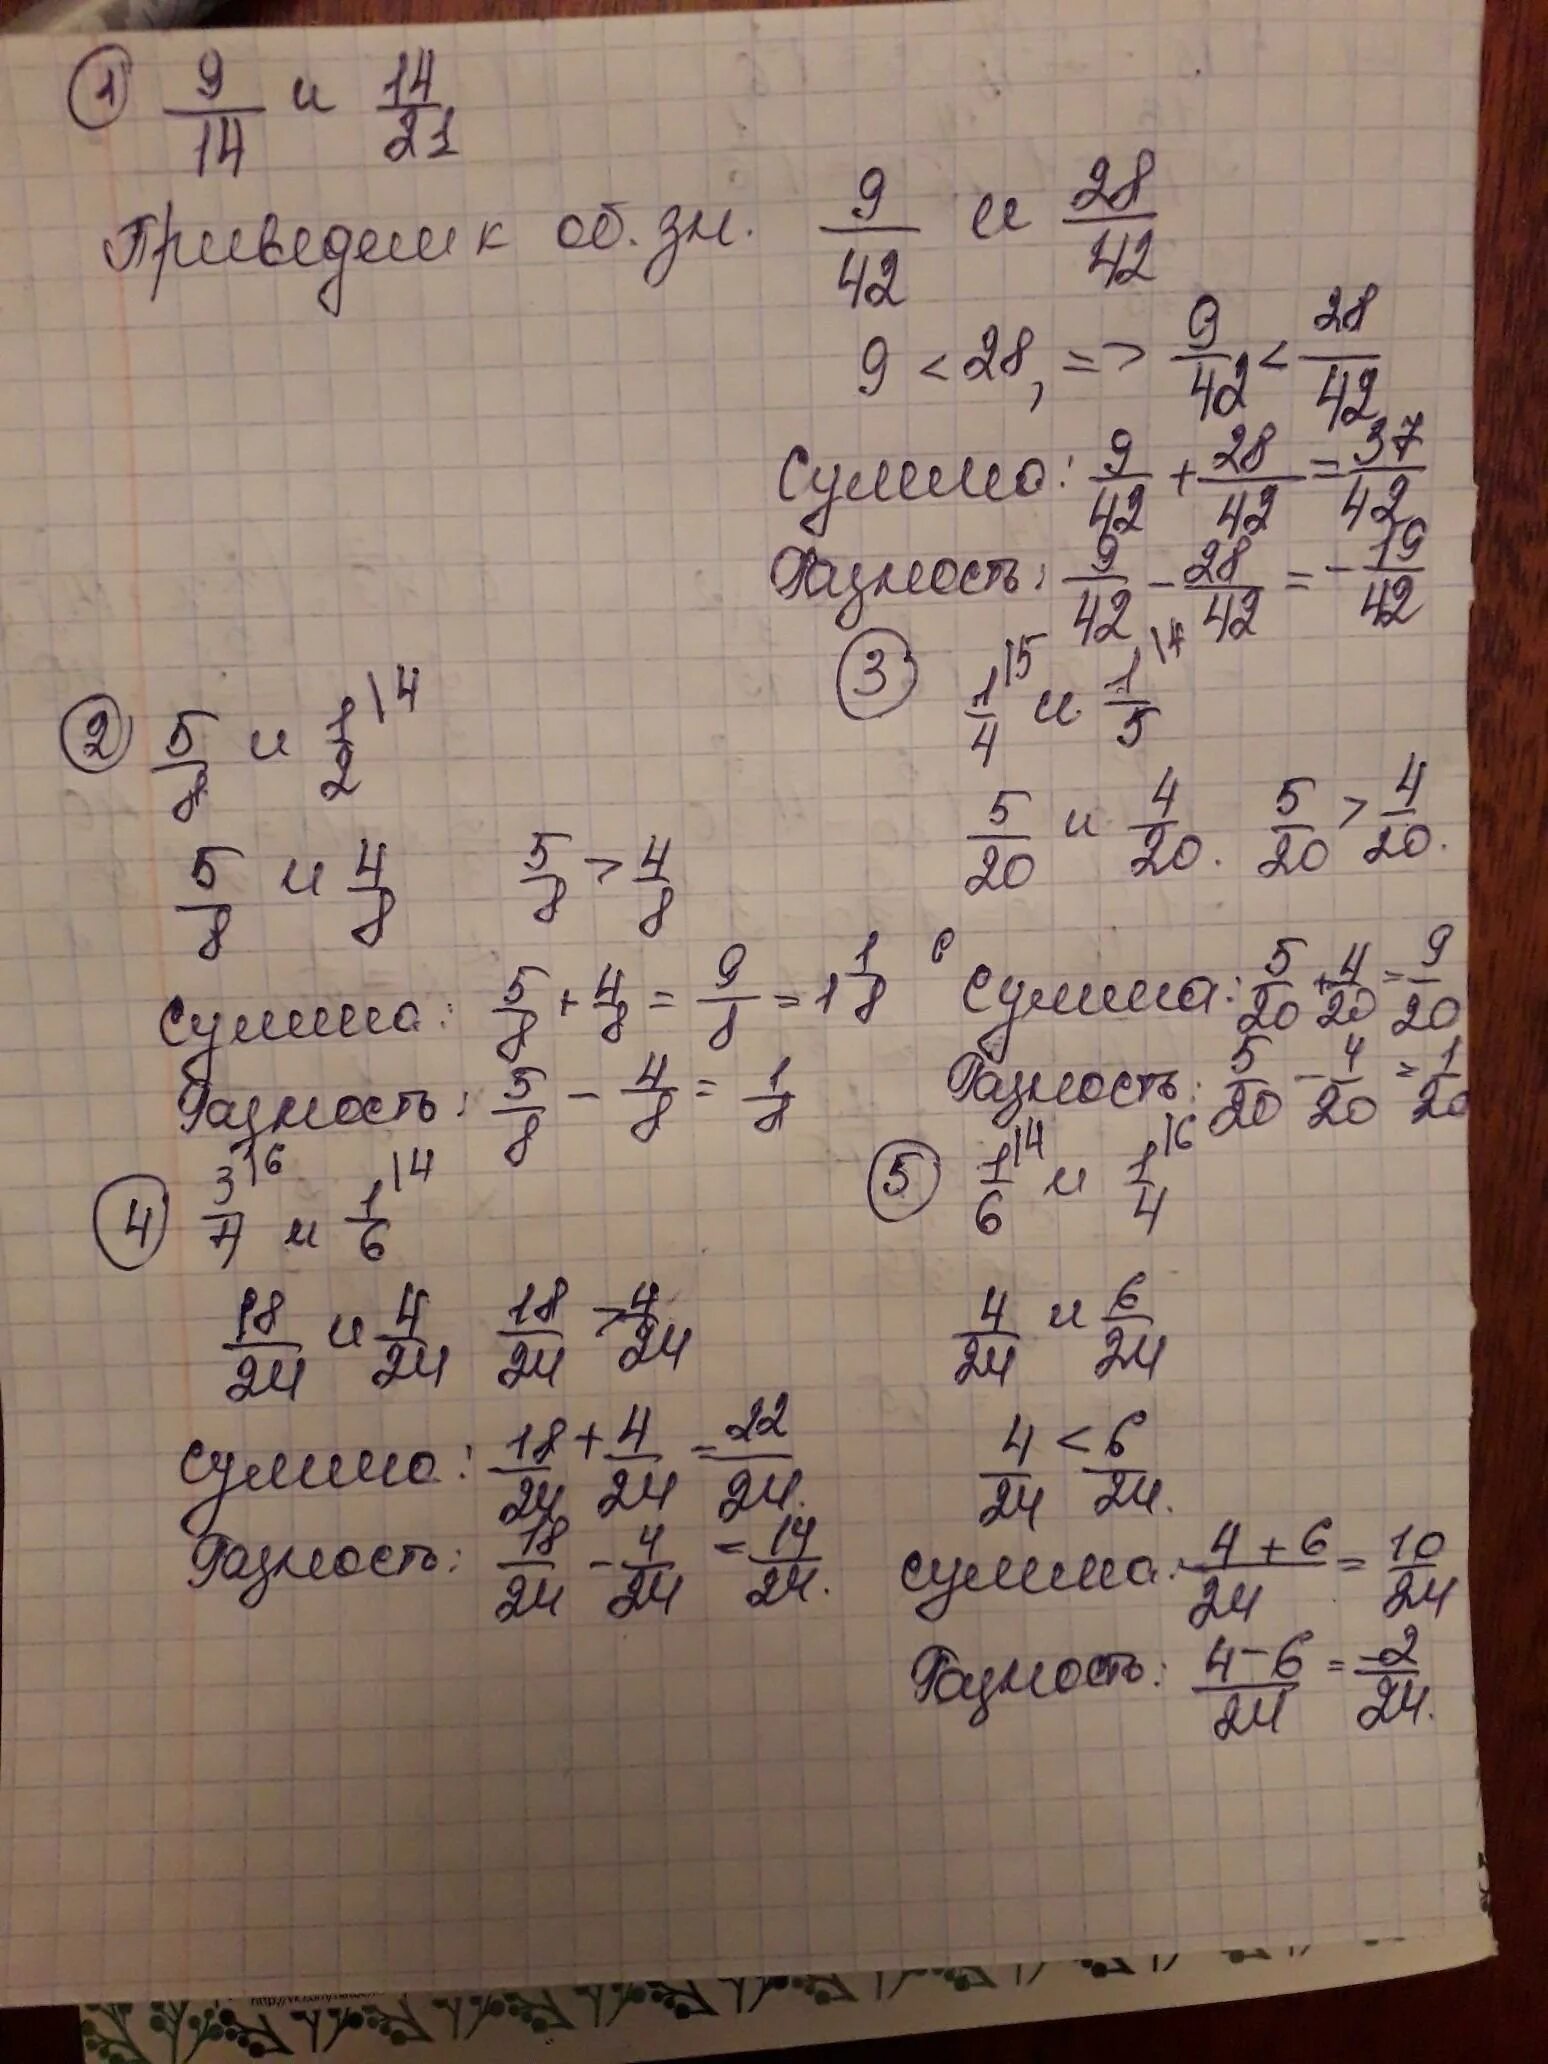 ① 9/14 и 14/21
Приведем к об. зн. 9/42 и 28/42
9 < 28, => 9/42 < 28/42
Сумма: 9/42 + 28/42 = 37/42
Разность: 9/42 - 28/42 = - 19/42
② 5/8 и 1/2 \4
5/8 и 4/8 5/8 > 4/8
Сумма: 5/8 + 4/8 = 9/8 = 1 1/8
Разность: 5/8 - 4/8 = 1/8
③ 1/4 \5 и 1/5 \4
5/20 и 4/20. 5/20 > 4/20.
Сумма: 5/20 + 4/20 = 9/20
Разность: 5/20 - 4/20 = 1/20
④ 3/4 \6 и 1/6 \4
18/24 и 4/24 18/24 > 4/24
Сумма: 18/24 + 4/24 = 22/24.
Разность: 18/24 - 4/24 = 14/24.
⑤ 1/6 \4 и 1/4 \6
4/24 и 6/24
4/24 < 6/24.
Сумма: 4+6/24 = 10/24
Разность: 4-6/24 = -2/24.